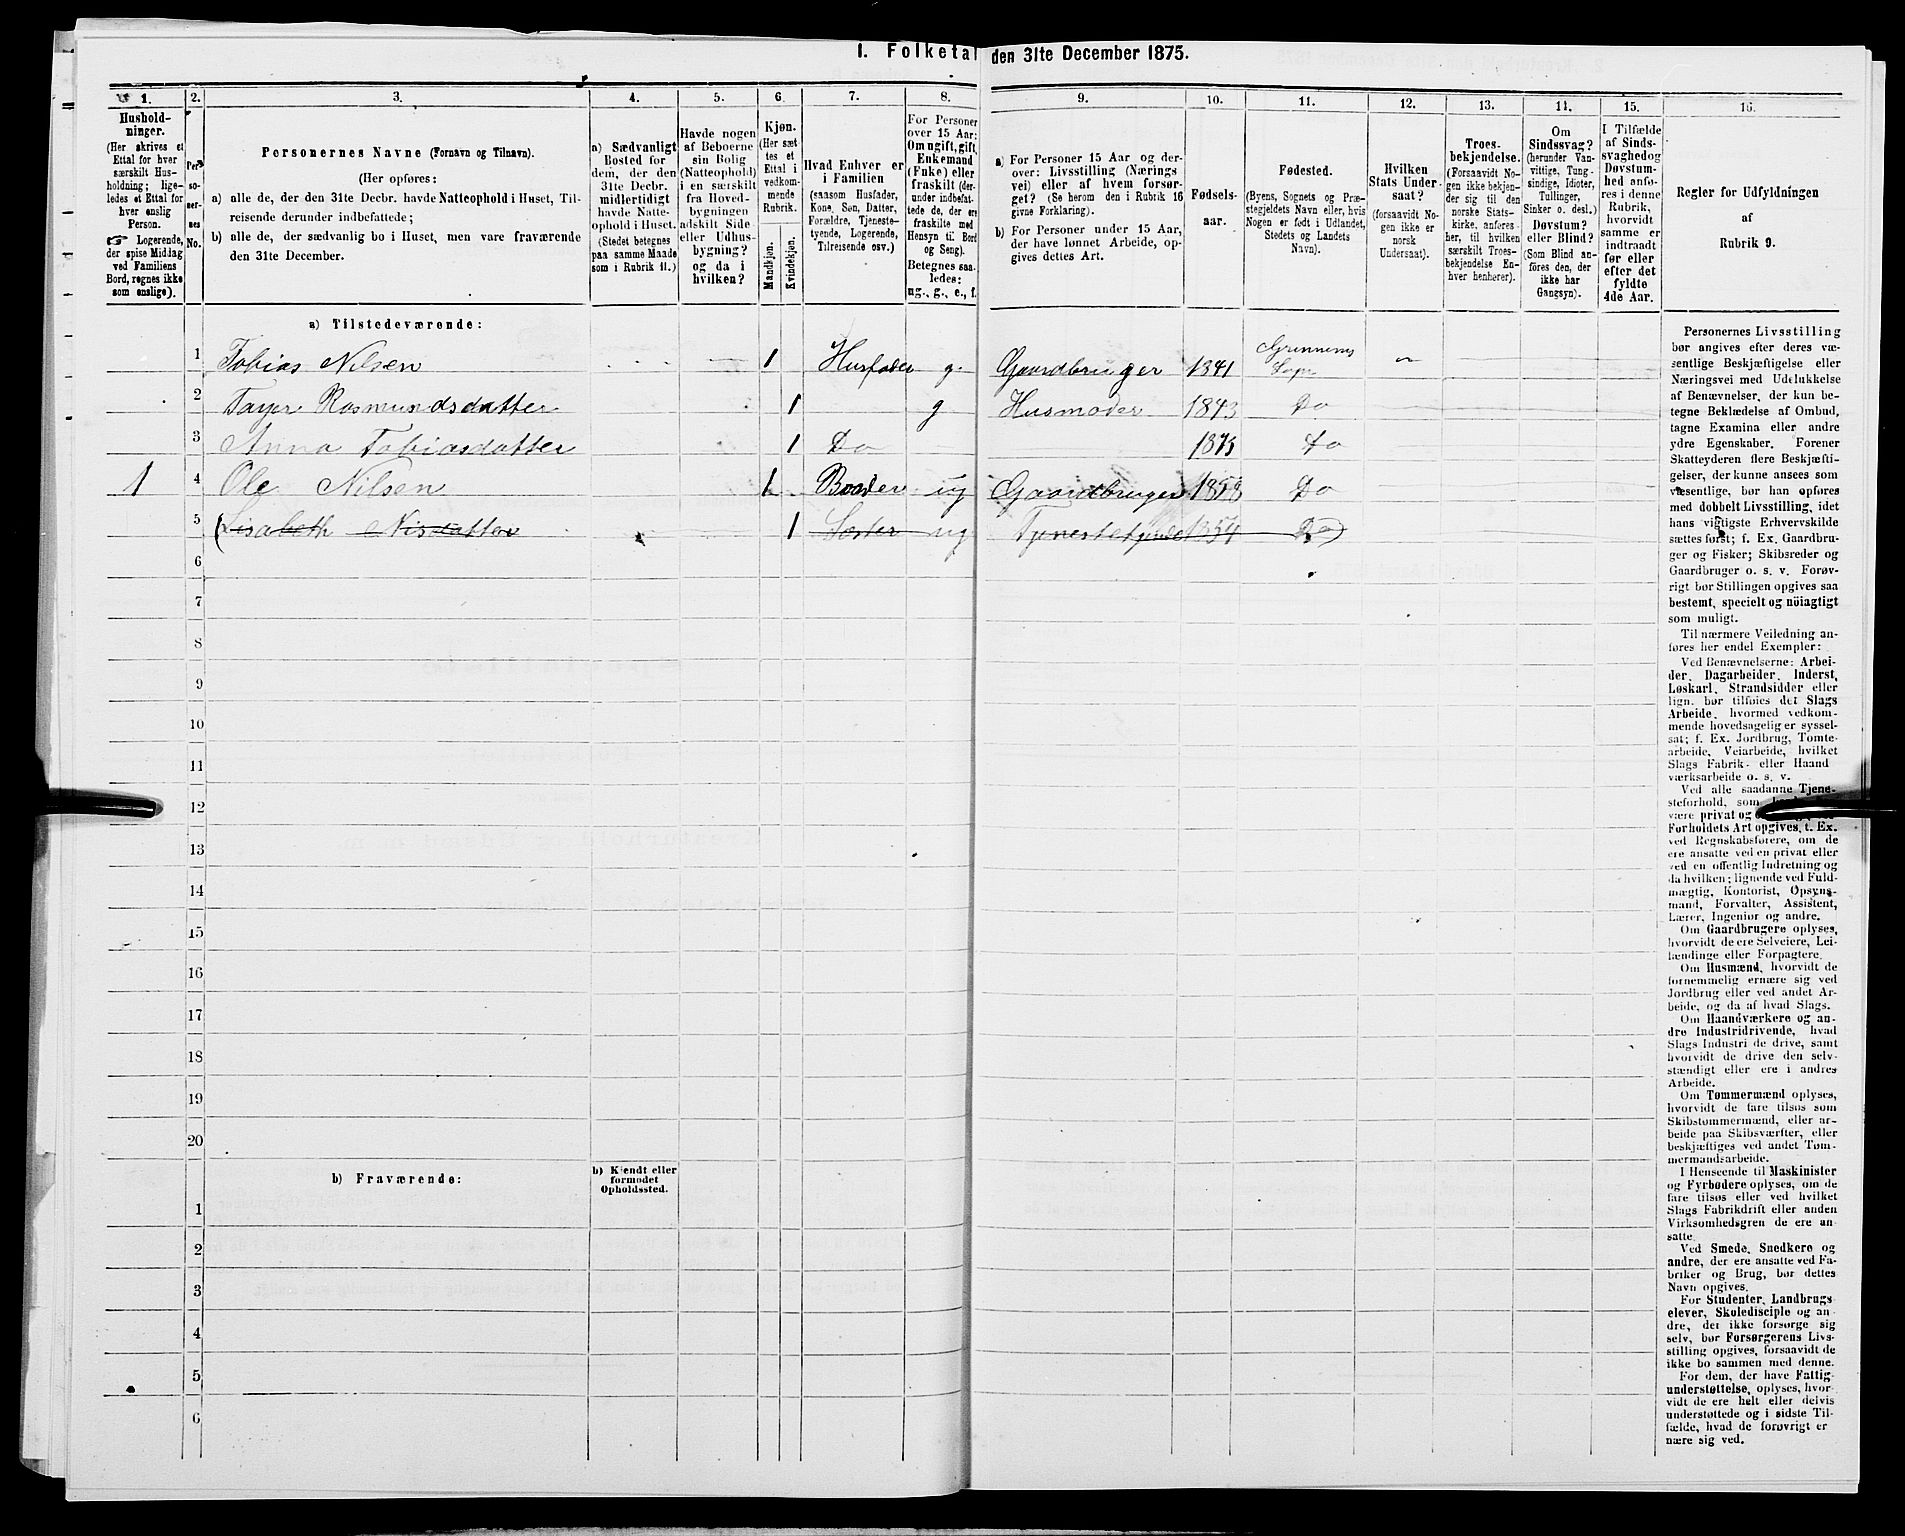 1. Folketal den 31te December 1875.
1. 2. 3. 4. 5. 6. 7. 8. 9. 10. 11. 12. 13. 14. 15. 16.
Hushold-
ninger.
(Her skrives et
Ettal for hver
særskilt Hus-
holdning; lige-
ledes et Ettal for
hver enslig
Person.
☞ Logerende,
der spise Middag
ved Familiens
Bord, regnes ikke
som enslige).
Per-
so-
ner-
nes
No.
Personernes Navne (Fornavn og Tilnavn).
(Her opføres:
a) alle de, der den 31te Decbr. havde Natteophold i Huset, Til-
reisende derunder indbefattede;
b) alle de, der sædvanlig bo i Huset, men vare fraværende
den 31te December.
a) Sædvanligt
Bosted for
dem, der den
31te Decbr.
midlertidigt
havde Natte-
ophold i Huset.
(Stedet betegnes
paa samme Maade
som i Rubrik 11.)
Havde nogen
af Beboerne
sin Bolig
(Natteophold)
i en særskilt
fra Hoved-
bygningen
adskilt Side-
eller Udhus-
bygning?
og da i
hvilken?
Kjøn.
(Her sæt-
tes et
Ettal i
vedkom-
mende
Rubrik.
Mandkjøn.
Kvindekjøn.
Hvad Enhver er
i Familien
(saasom Husfader,
Kone, Søn, Datter,
Forældre, Tjeneste-
tyende, Logerende,
Tilreisende osv.)
For Personer
over 15 Aar:
Om ugift, gift,
Enkemand
(Enke) eller
fraskilt (der-
under indbefat-
tede de, der ere
fraskilte med
Hensyn til Bord
og Seng).
Betegnes saa-
ledes:
ug., g., e., f.
a) For Personer 15 Aar og der-
over: Livsstilling (Nærings
vei) eller af hvem forsør-
get? (Se herom den i Rubrik 16
givne Forklaring).
b) For Personer under 15 Aar,
der have lønnet Arbeide, op-
gives dettes Art.
Fødsels-
aar.
Fødested.
(Byens, Sognets og Præ-
stegjeldets Navn eller, hvis
Nogen er født i Udlandet,
Stedets og Landets
Navn).
Hvilken
Stats Under-
saat?
(forsaavidt No-
gen ikke er
norsk
Undersaat).
Troes-
bekjendelse.
(Forsaavidt No-
gen ikke bekjen-
der sig til den
norske Stats-
kirke, anføres
her, til hvilken
særskilt Troes-
bekjendelse En-
hver henhører).
Om
Sindssvag?
(herunder Van-
vittige, Tung-
sindige, Idioter,
Tullinger,
Sinker o. desl.)
Døvstum?
eller Blind?
(Som Blind an-
føres den, der
ikke har
Gangsyn).
I Tilfælde
af Sinds-
svaghed og
Døvstum-
hed anfø-
res i denne
Rubrik,
hvorvidt
samme er
indtraadt
før eller
efter det
fyldte
4de Aar.
Regler for Udfyldningen
af
Rubrik 9.
a) Tilstedeværende:
1 Tobias Nilsen 1 Husfader g. Gaardbruger 1841
2 Rasmundsdatter 1 g Husmoder 1843 Do
3 Anna Tobiasdatter 1 Do 1875 Do
1 4 Ole Nilsen 1 ug Gaardbruger 1858 Do
5 (Lisabeth Nisdatter 1 Søster ug Tjenestetyende 1854 Do)
6
7
8
9
10
11
12
13
14
15
16
17
18
19
20
b) Fraværende:
b) Kjendt eller
formodet
Opholdssted.
1
2
3
4
5
6
Personernes Livsstilling
bør angives efter deres væ-
sentlige Beskjæftigelse eller
Næringsvei med Udelukkelse
af Benævnelser, der kun be-
tegne Beklædelse af Ombud,
tagne Examina eller andre
ydre Egenskaber. Forener
Skatteyderen flere Beskjæfti-
gelser, der kunne ansees som
væsentlige, bør han opføres
med dobbelt Livsstilling, idet
hans vigtigste Erhvervskilde
sættes først; f. Ex. Gaardbru-
ger og Fisker; Skibsreder og
Gaardbruger o. s. v. Forøv-
rigt bør Stillingen opgives saa
bestemt, specielt og nöiagtigt
som muligt.
Til nærmere Veiledning an-
føres her endel Exempler:
Ved Benævnelserne: Arbei-
der, Dagarbeider, Inderst,
Løskarl, Strandsidder eller
lign. bør tilføies det Slags
Arbeide, hvormed vedkom-
mende hovedsagelig er syssel-
sat; f. Ex. Jordbrug, Tomte-
arbeide, Veiarbeide, hvilket
Slags Fabrik- eller Haand
værksarbeide o. s. v.
Ved alle saadanne Tjene-
steforhold, som
være privat og
Forholdets Art opgives, t. Ex.
ved Regnskabsførere, om de
ere ansatte ved en privat eller
ved en offentlig Indretning og
da hvilken; lignende ved Fuld-
mægtig, Kontorist, Opsyns-
mand, Forvalter, Assistent,
Lærer, Ingeniør og andre.
Om Gaardbrugere oplyses,
hvorvidt de ere Selveiere, Lei-
lændinge eller Forpagtere.
Om Husmænd, hvorvidt de
fornemmelig ernære sig ved
Jordbrug eller ved andet Ar-
beide, og da af hvad Slags.
Om Haandværkere og an-
dre Industridrivende, hvad
Slags Industri de drive, samt
hvorvidt de drive den selv-
stændigt eller ere i andres
Arbeide.
Om Tømmermænd oplyses,
hvorvidt de fare tilsøs som
Skibstømmermænd, eller ar-
beide paa Skibsværfter, eller
beskjæftiges ved andet Tøm-
mermandsarbeide.
I Henseende til Maskinister
og Fyrbødere oplyses, om de
fare tilsøs eller ved hvilket
Slags Fabrikdrift eller anden
Virksomhedsgren de ere an-
satte.
Ved Smede, Snedkere og
andre, der ere ansatte ved Fa-
briker og Brug, bør dettes
Navn opgives.
For Studenter, Landbrugs-
elever, Skoledisciple og an-
dre, der ikke forsørge sig
selv, bør Forsørgerens Livs-
stilling opgives, forsaavidt de
ikke bo sammen med denne.
For dem, der have Fattig-
understøttelse, oplyses, hvor-
vidt de ere helt eller delvis
understøttede og i sidste Til-
fælde, hvad de forøvrigt er
nære sig ved.